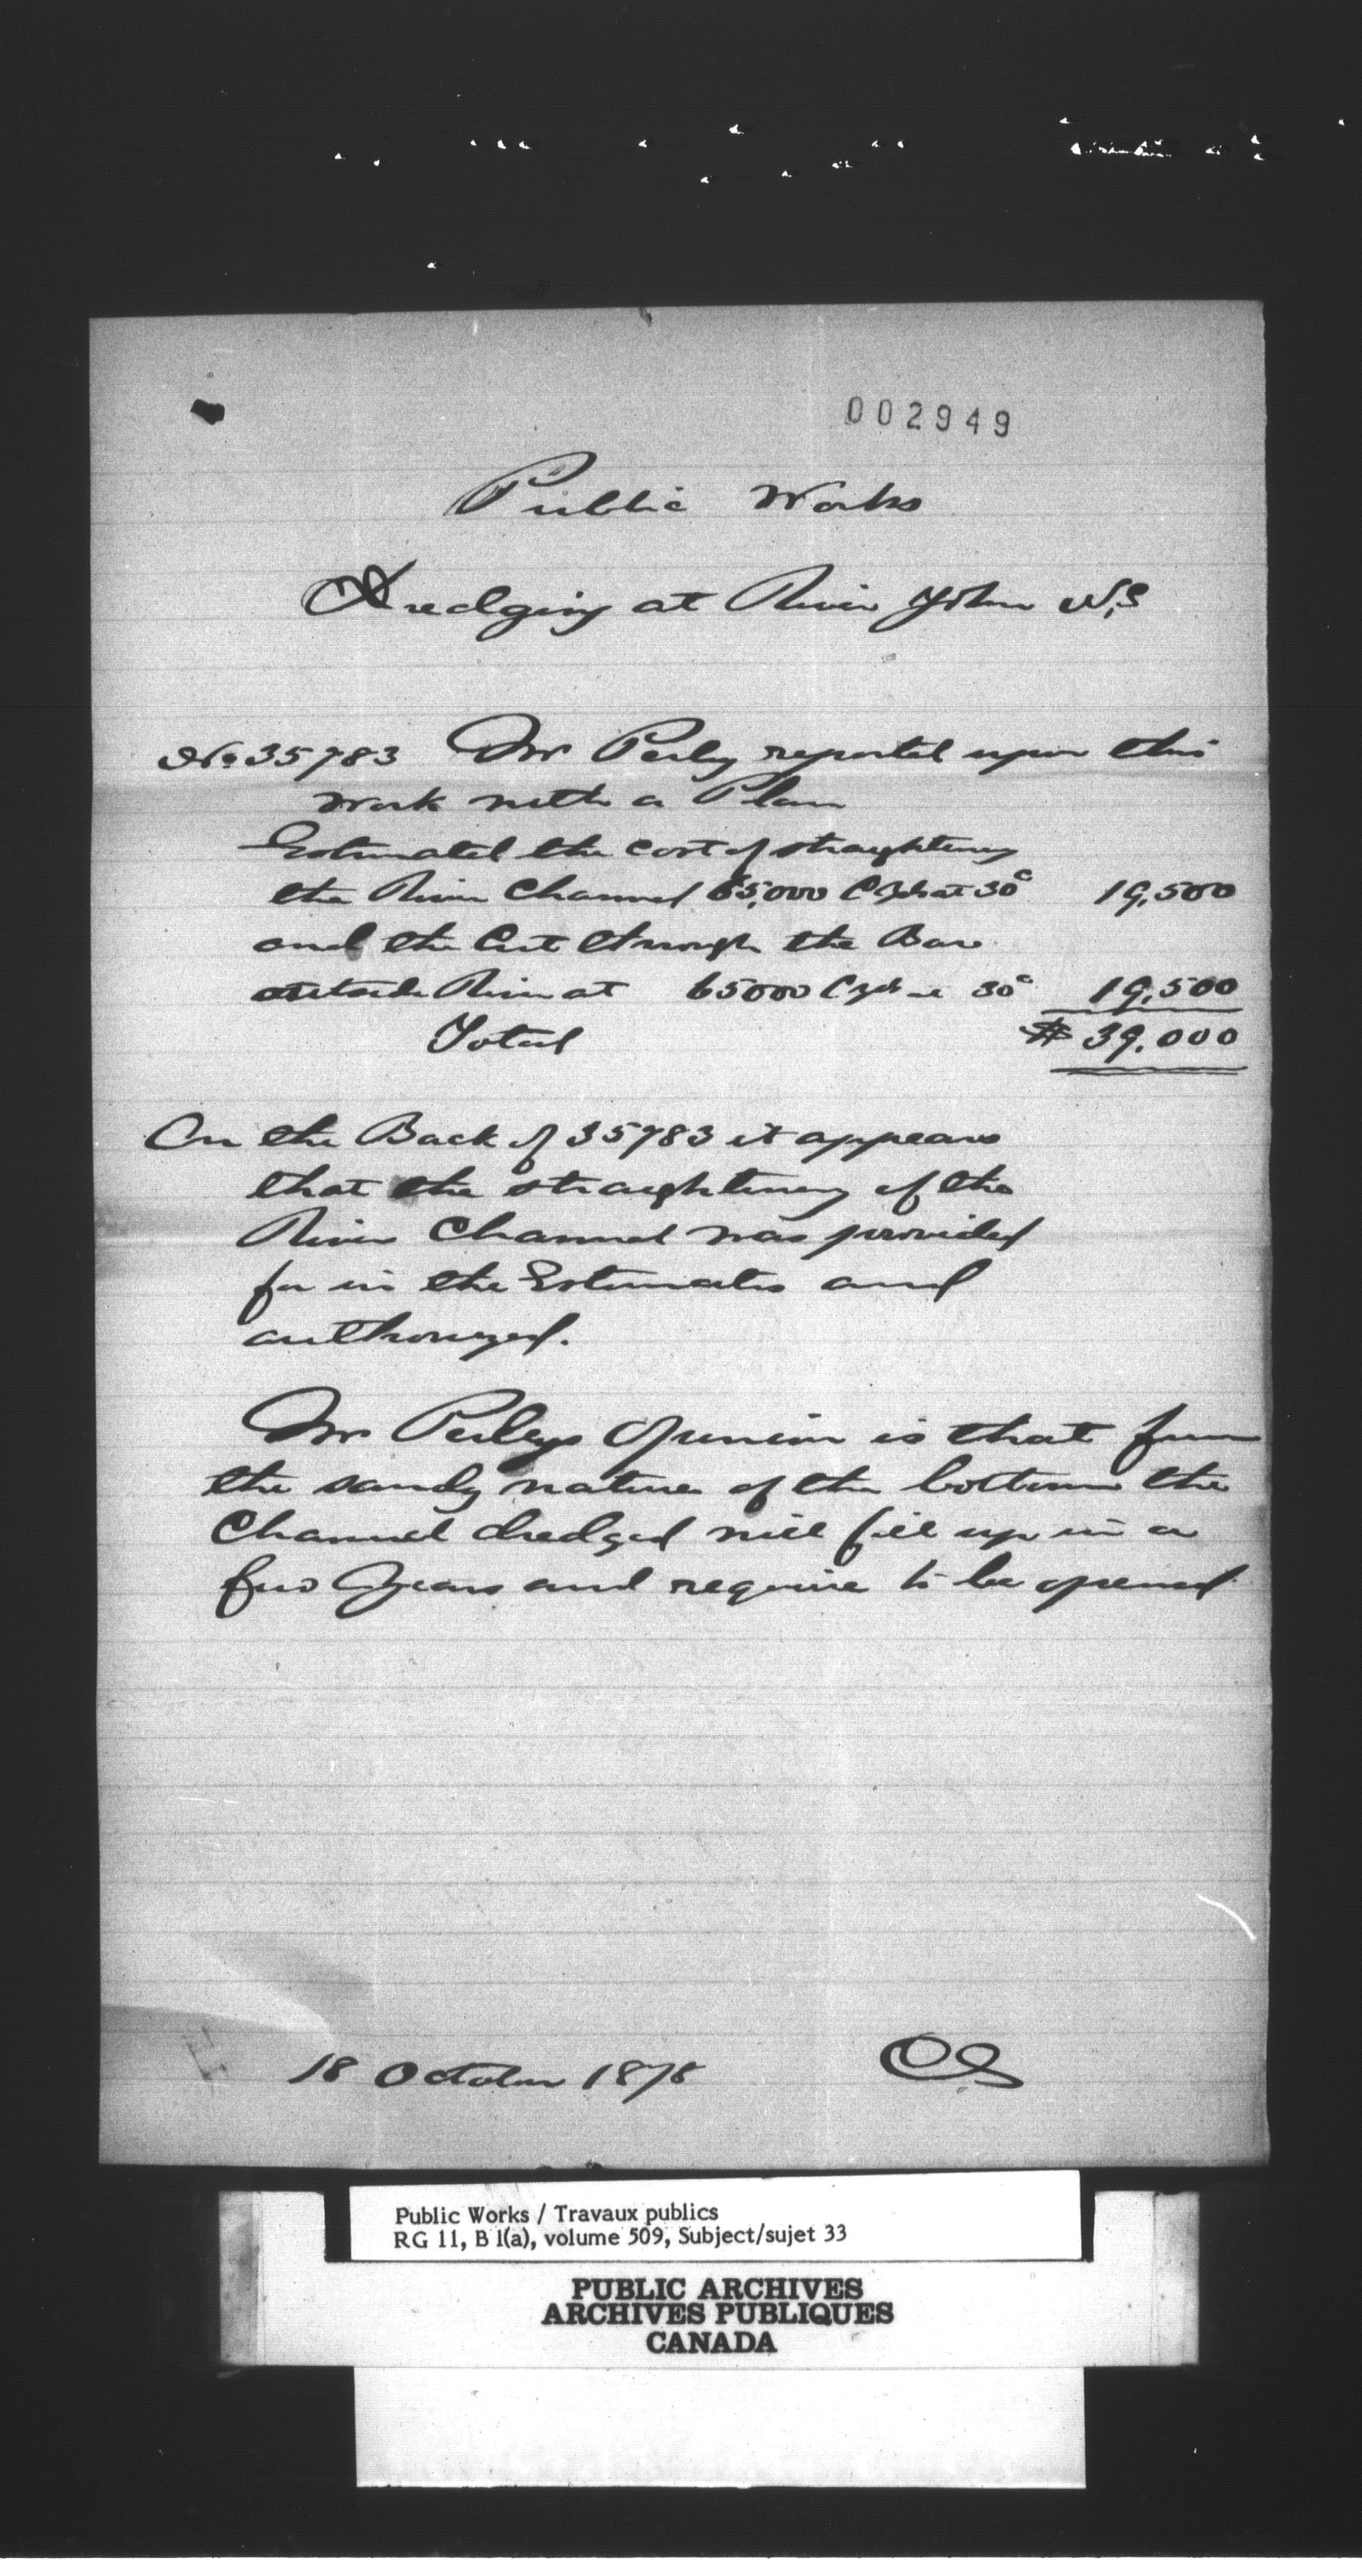 002949
Public Works
Dredging at River John N.S
No 35783 Mr Perley reported upon this
work with a Plan
Estimated the cost of straightening
the River Channel 65,000 C Yds at 30c 19,500
and the Cut through the Bar
outside River at 65000 C Yds 30c 19,500
Total $ 39.000
On the Back of 35783 it appears
that the straightening of the
River Channel was provided
for in the Estimates and
authorized.
Mr Perleys Opinion is that from
the sandy nature of the bottom the
Channel dredged will fill up in a
few Years and require to be opened
18 October 1878
Public Works / Travaux publics
RG 11, B 1(a), volume 509, Subject/sujet 33
PUBLIC ARCHIVES
ARCHIVES PUBLIQUES
CANADA